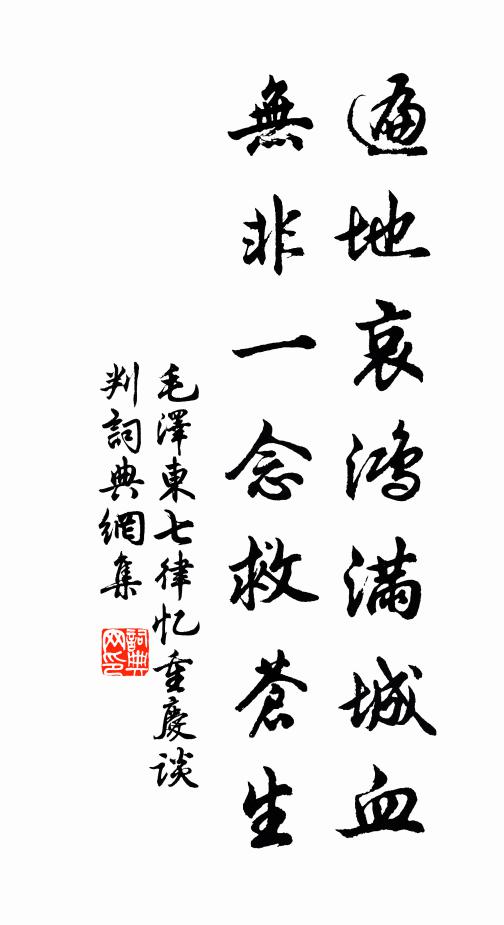 遍地哀鴻滿城血
無非一念救蒼生
毛澤東七律忆重慶談
判詞典網集
詞典网印